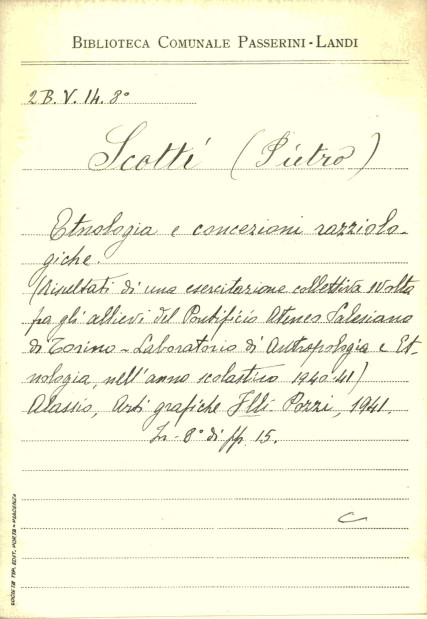 BIBLIOTECA COMUNALE PASSERINI-LANDI
2 B. V. 14. 8°
Scotti (Pietro)
Etnologia e concezioni razziolo-
giche.
(Risultati di una esercitazione collettiva svolta
fra gli allievi del Pontificio Ateneo Salesiano
di Torino - Laboratorio di Antropologia e Et-
nologia, nell'anno scolastico 1940-41)
Alassio, Arti grafiche Flli. Pozzi, 1941.
In-8° di pp. 15.
C
SOCIETÀ TIP. EDIT. PORTA - PIACENZA